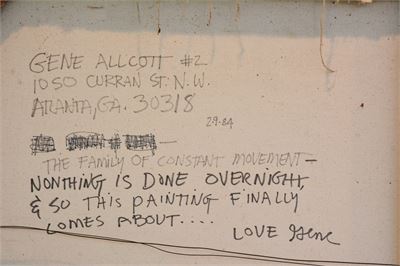 GENE ALLCOTT #2
1050 CURRAN ST. N.W.
ATLANTA, GA. 30318
2.9.84
THE FAMILY OF CONSTANT MOVEMENT—
NONTHING IS DONE OVERNIGHT,
& SO THIS PAINTING FINALLY
COMES ABOUT....
LOVE Gene